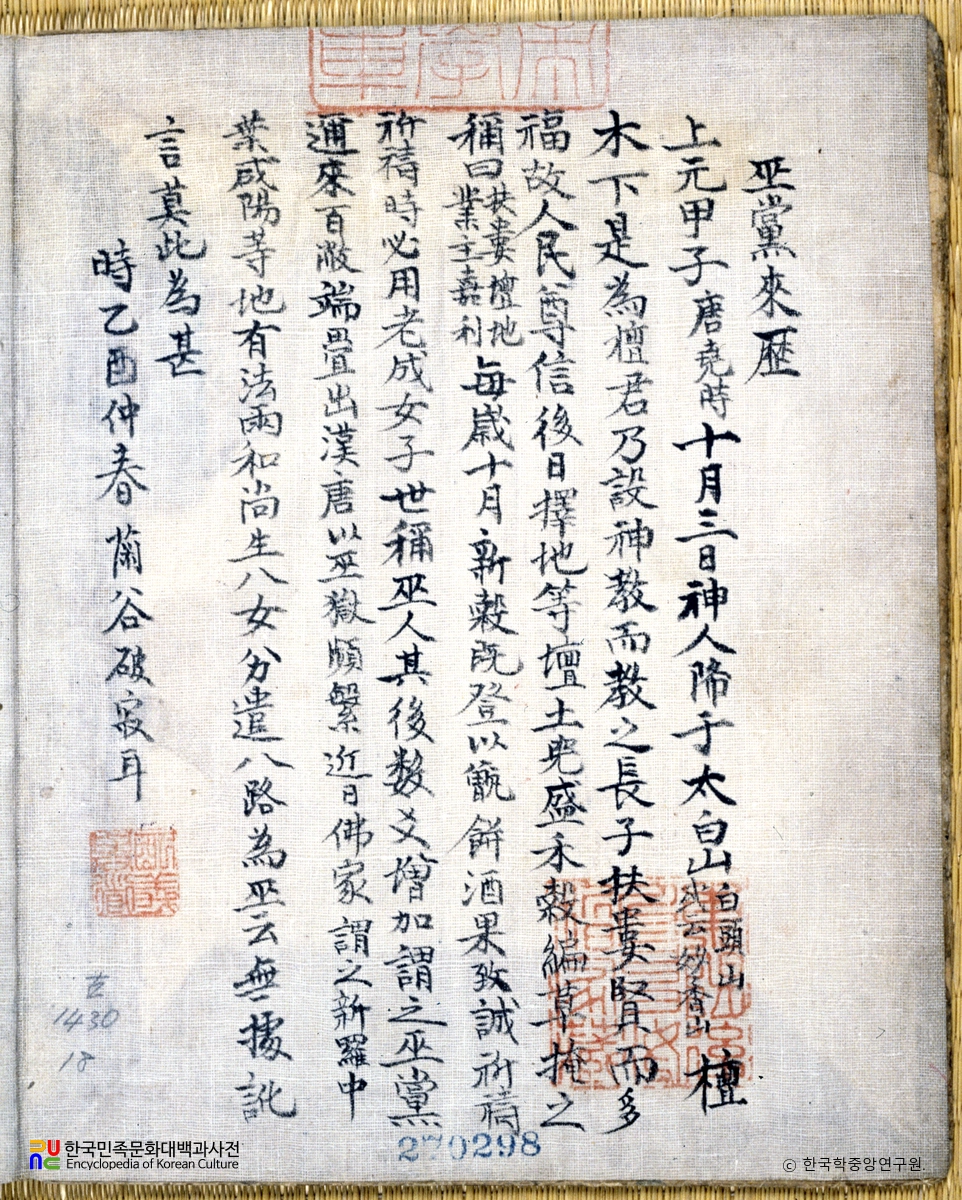 巫黨來歷
上元甲子唐堯時十月三日神人降于太白山白頭山或云妙香山檀
木下是為檀君乃設神教而教之長子扶婁賢而多
福故人民尊信後日擇地等壇土 盛禾穀編草掩之
稱曰扶婁壇地業主嘉利每歲十月新穀旣登以甑餅酒果致誠祈禱
祈禱時必用老成女子世稱巫人其後数爻增加謂之巫黨
邇來百敝端疊出漢唐以巫獄頗繁近日佛家謂之新羅中
葉咸陽等地有法雨和尚生八女分遣八路為巫云無據訛
言莫此為甚
時乙酉仲春蘭谷破寂耳
1430
18
270298
한국민족문화대백과사전
Encyclopedia of Korean Culture
ⓒ 한국학중앙연구원.